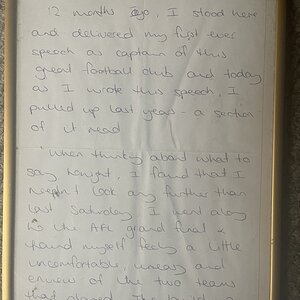 12 months ago, I stood here
and delivered my first ever
speech as captain of this
great football club and today
as I wrote this speech, I
pulled up last years - a section
of it read
When thinking about what to
say tonight, I found that I
needn't look any further than
last Saturday. I went along
to the AFL grand final &
found myself feeling a little
uncomfortable, uneasy and
envious of the two teams
that played. The